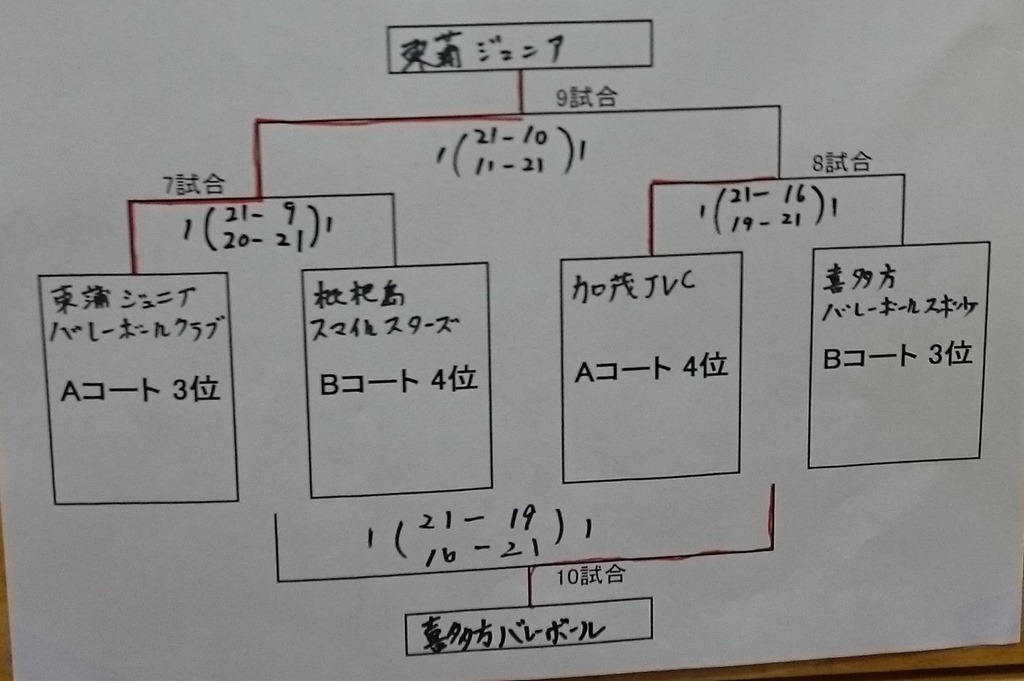 東蒲ジュニア
9試合
1(21-10
11-21)1
7試合
8試合
1(21-9
20-21)1
1(21-16
19-21)1
東蒲ジュニア
バレーボールクラブ
Aコート 3位
枇杷島
スマイルスターズ
Bコート 4位
加茂JVC
Aコート 4位
喜多方
バレーボールスポ少
Bコート 3位
1(21-19
16-21)1
10試合
喜多方バレーボール